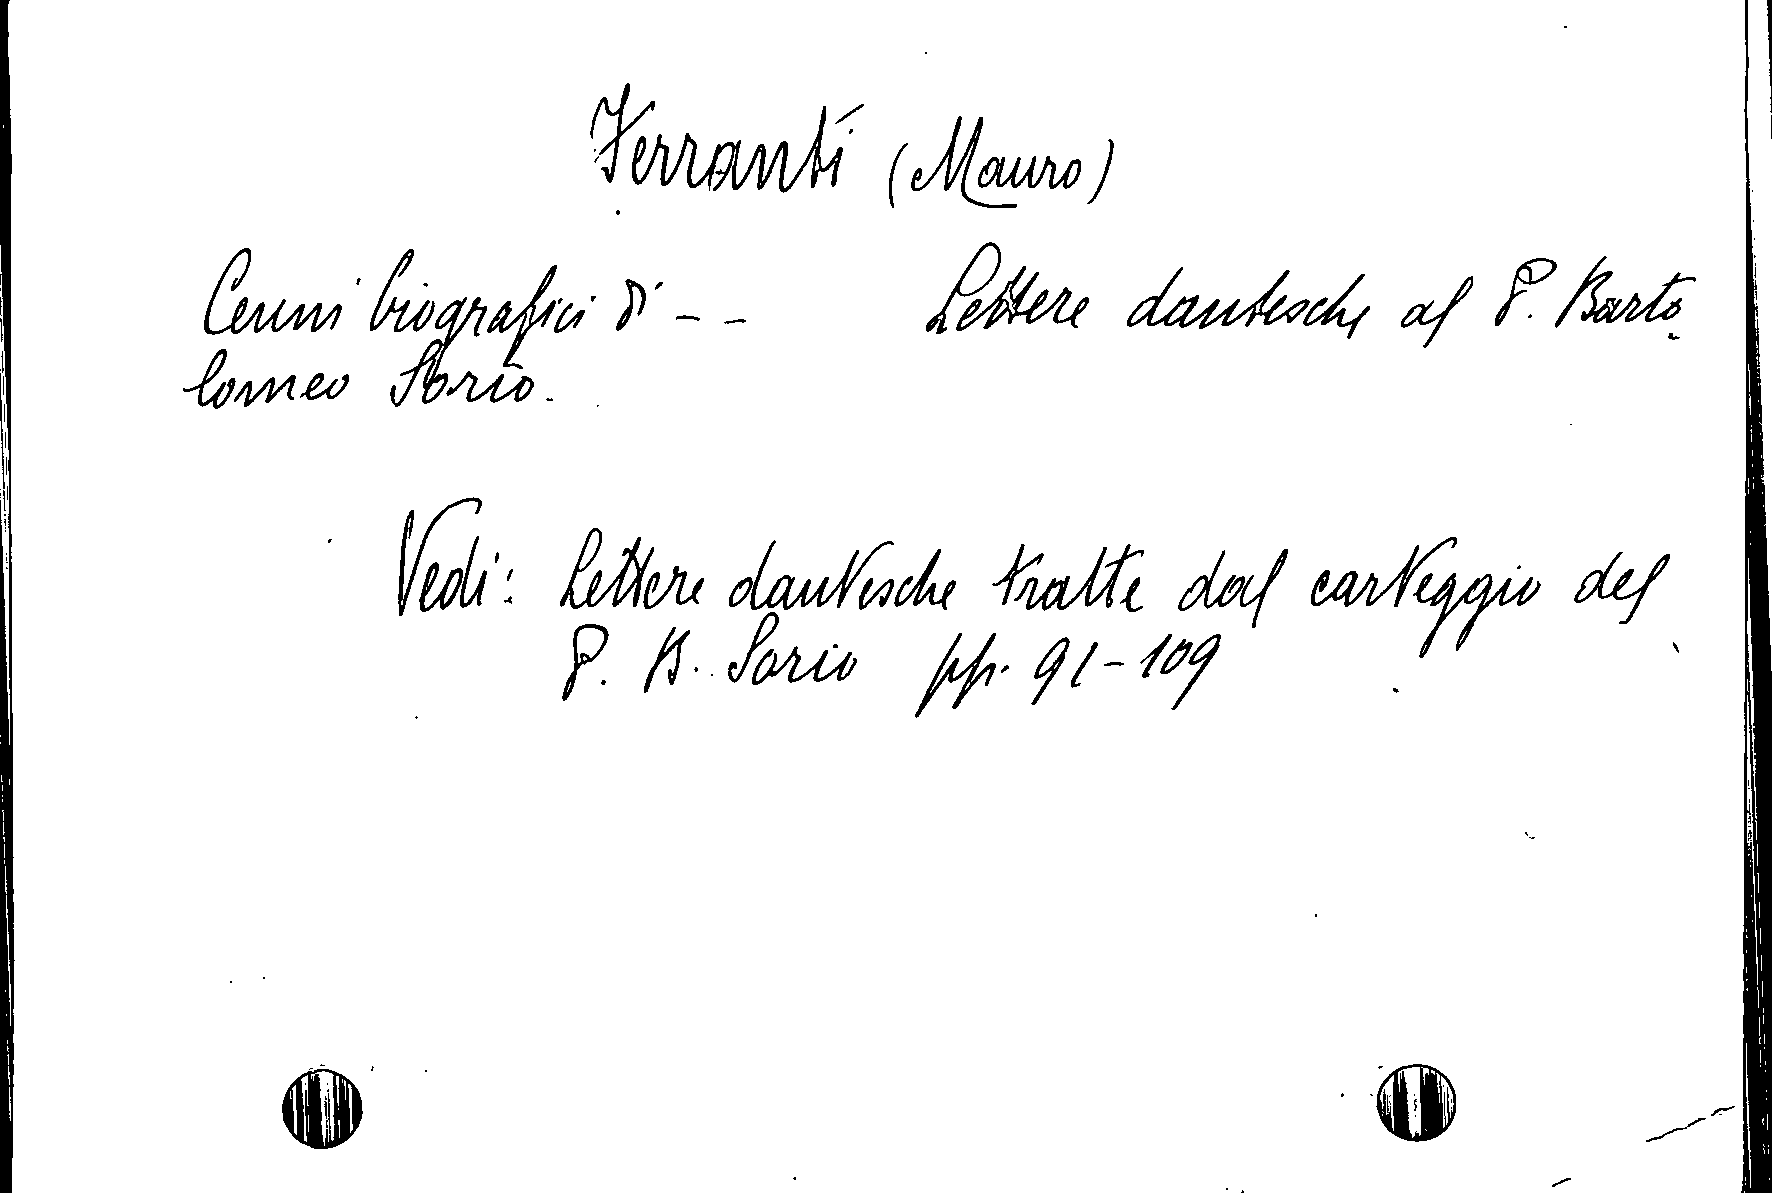 Ferranti (Mauro)
Cenni biografici di - - Lettere dantesche al P. Barto
lomeo Sorio.
Vedi: Lettere dantesche tratte dal carteggio del
P. B. Sorio pp. 91-109